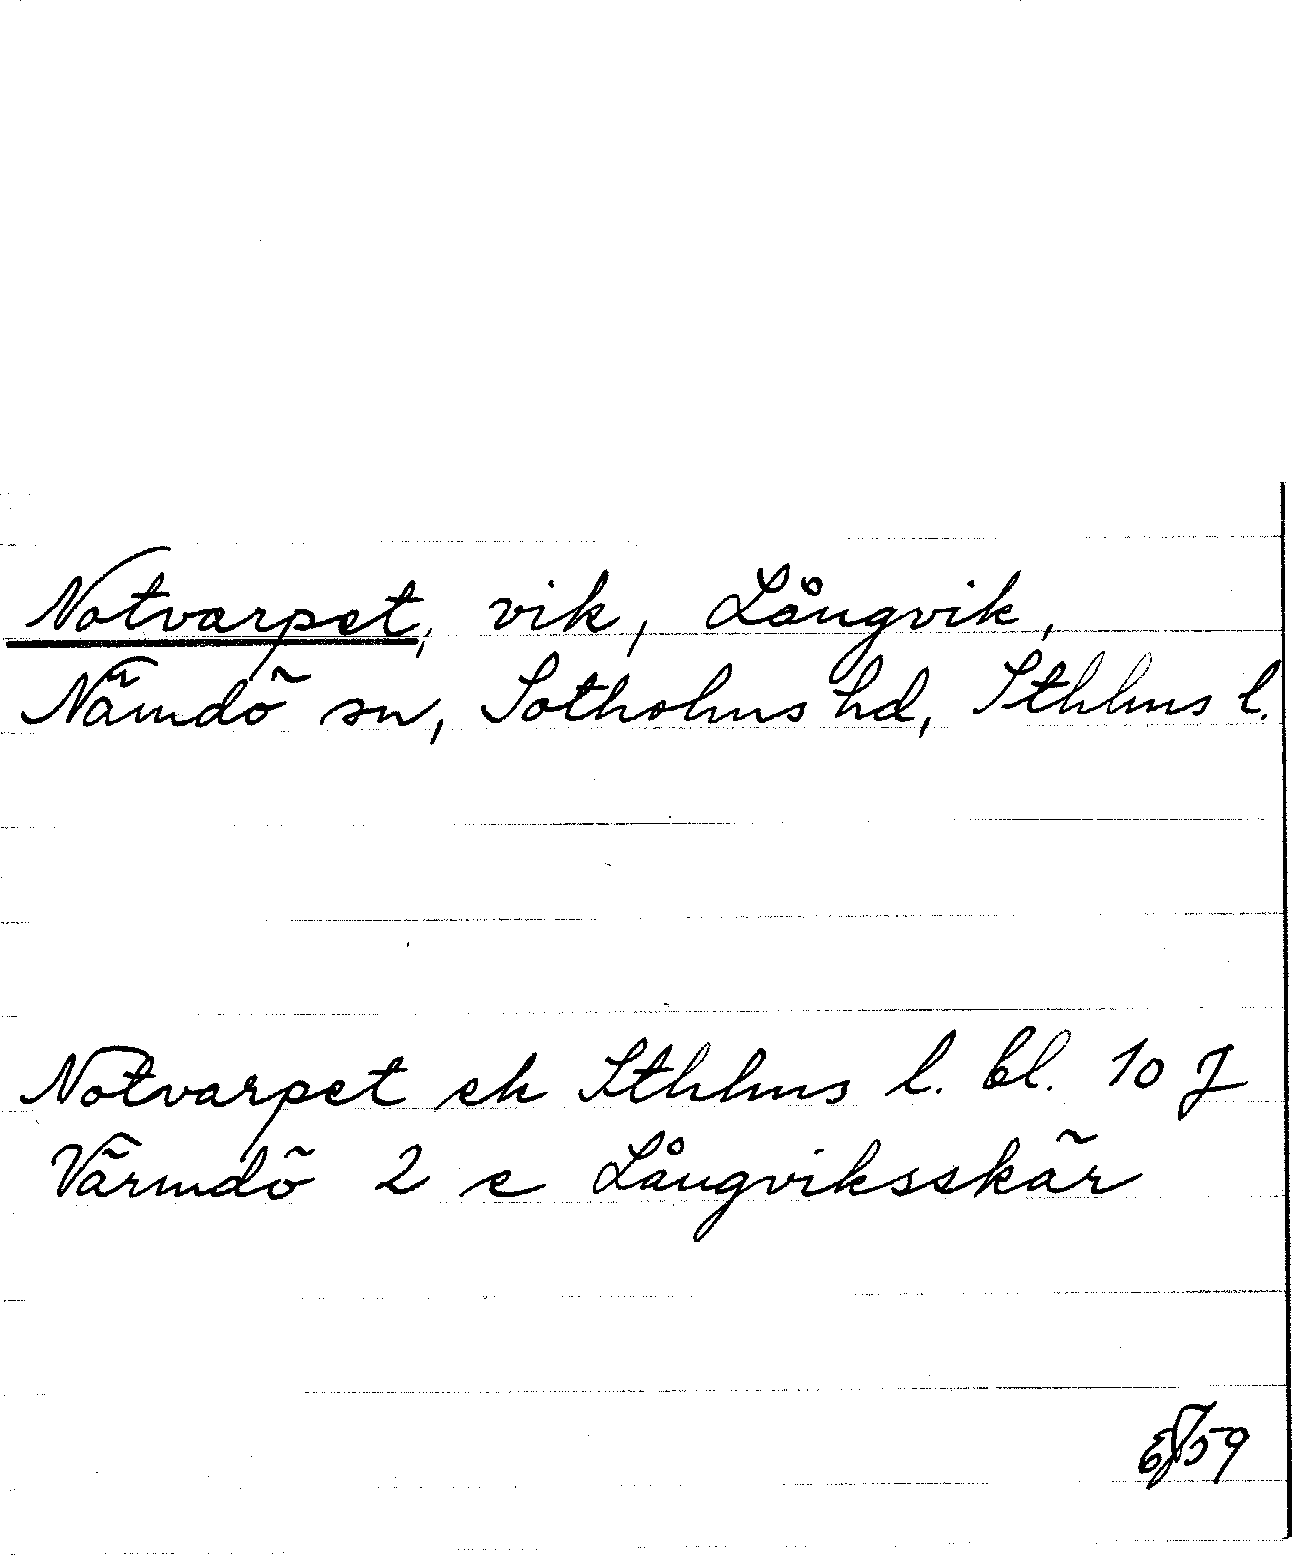 Notvarpet, vik, Långvik,
Nämdö sn, Sotholms hd, Sthlms l.
Notvarpet ek Sthlms l. bl. 10 J
Värmdö 2 c Långviksskär